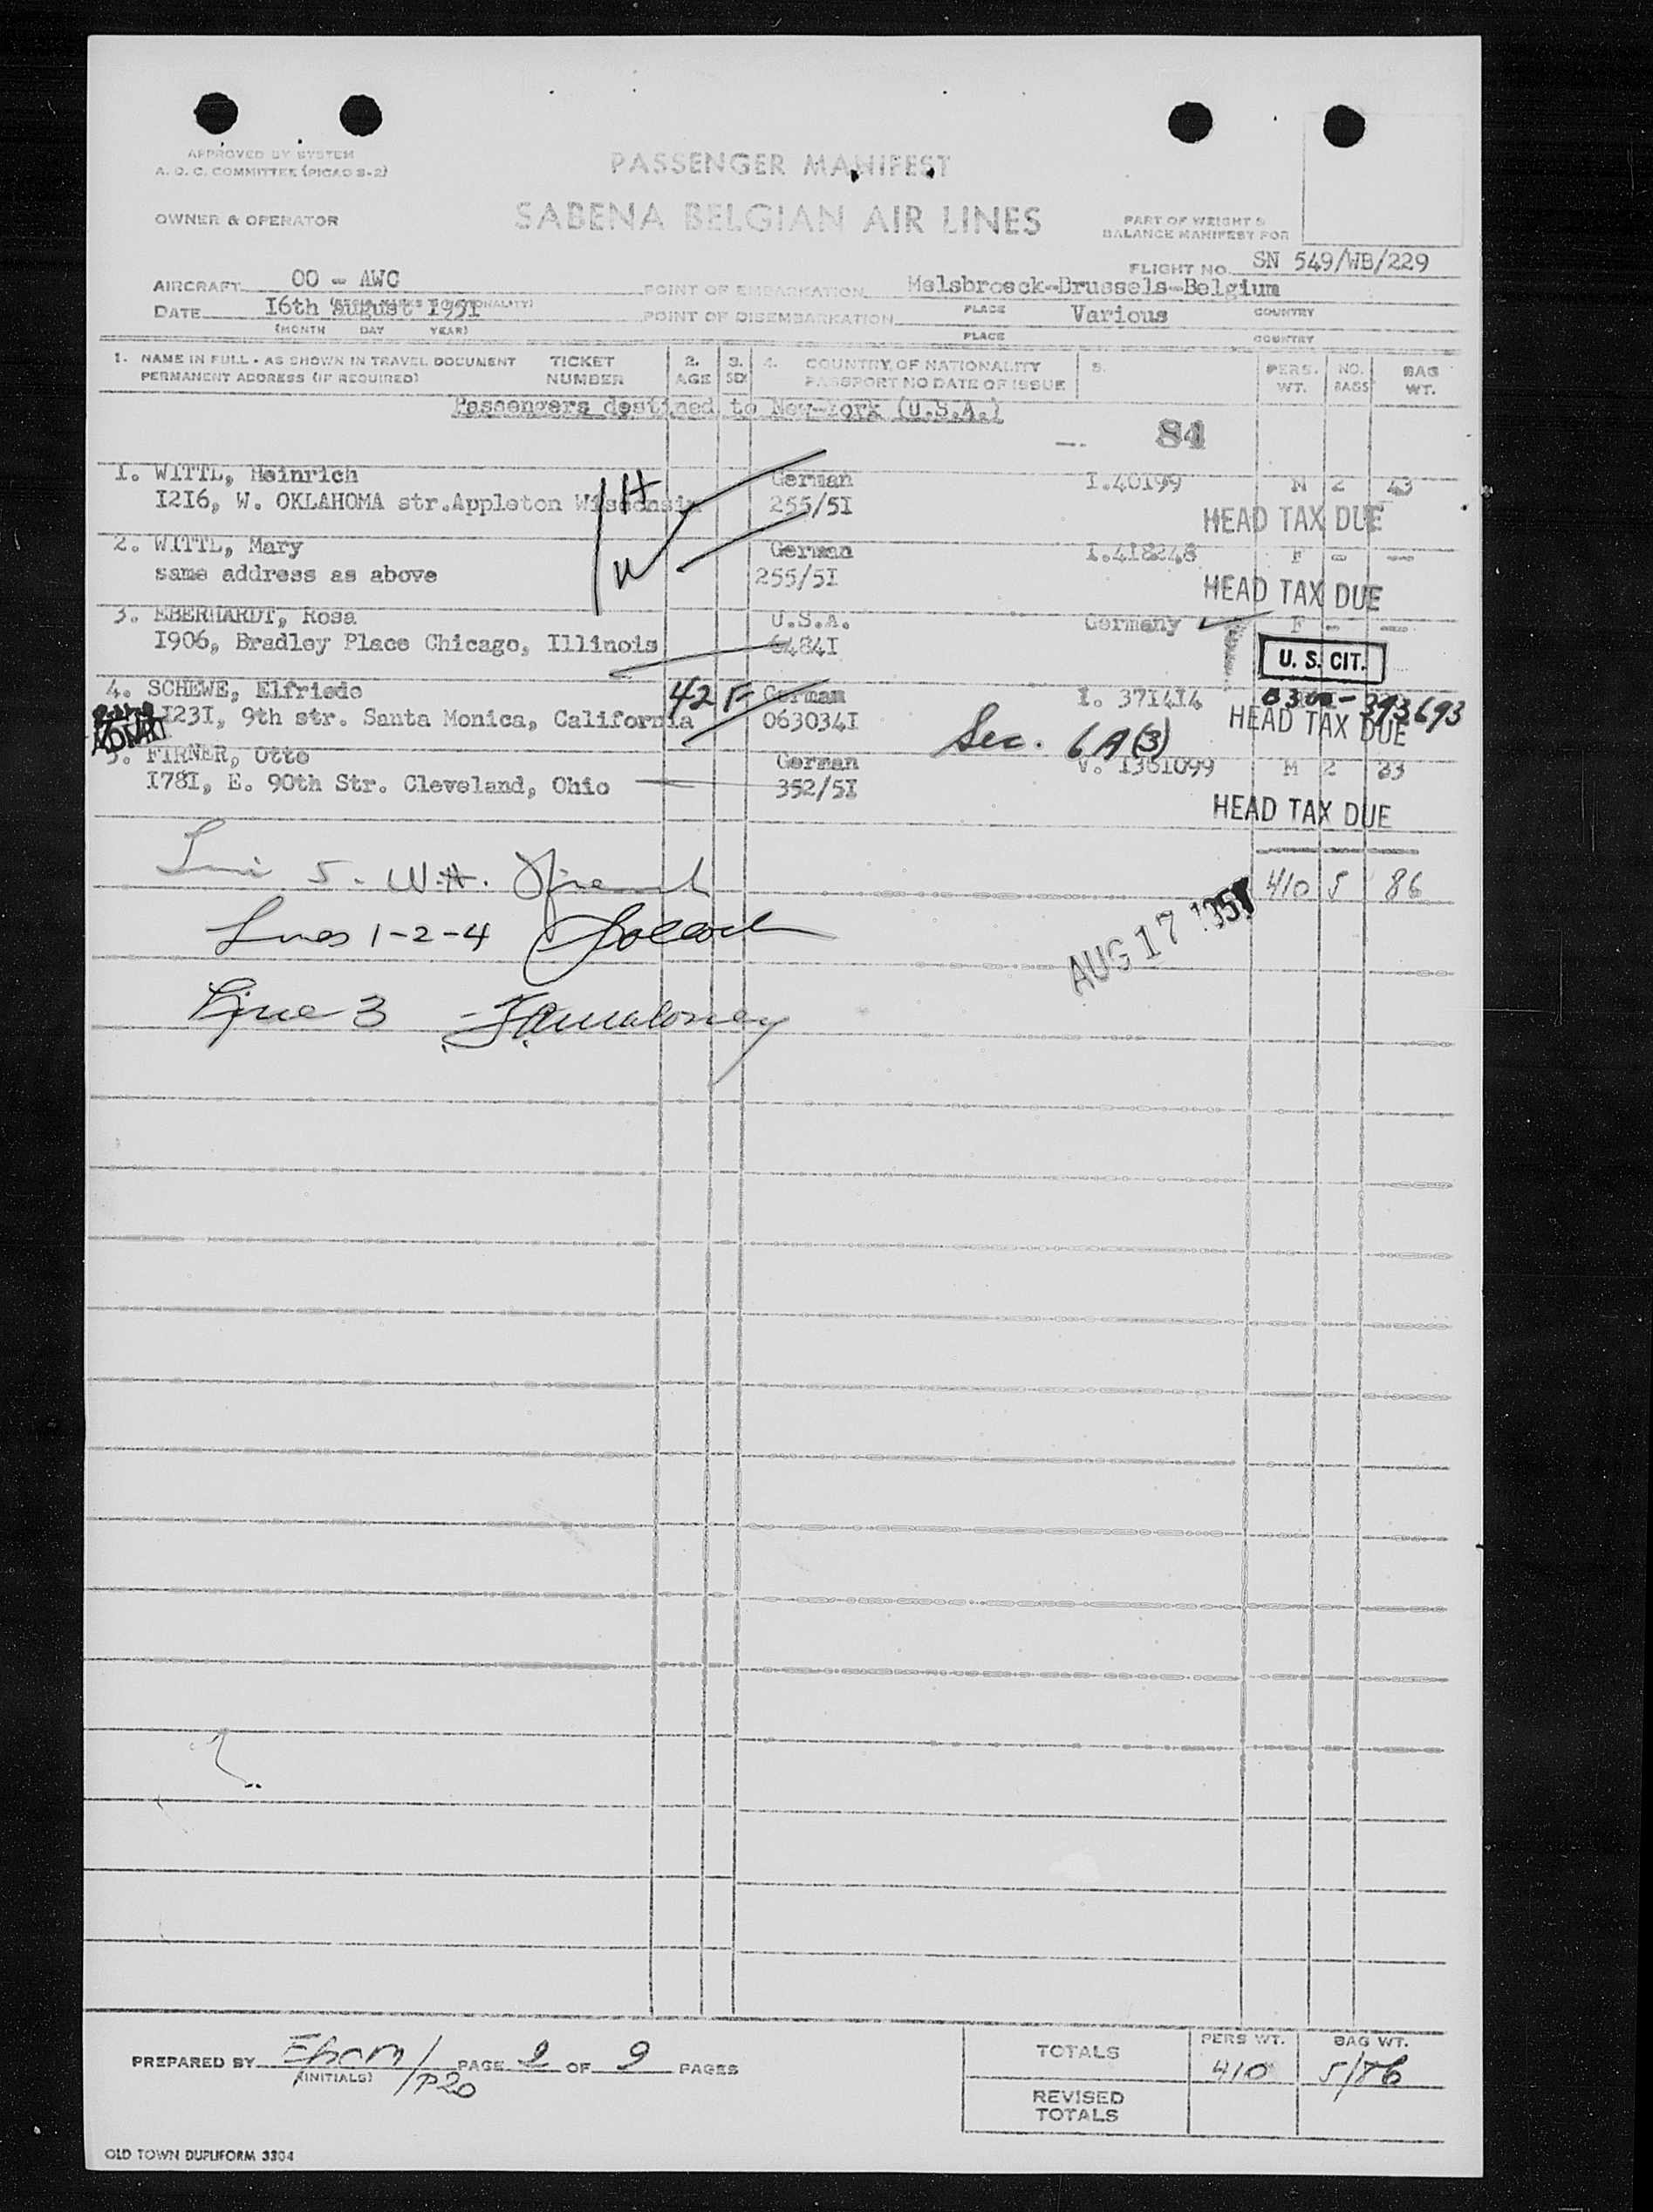 APPROVED BY SYSTEM
A. O. C. COMMITTEE (PICAO S-2)
PASSENGER MANIFEST
OWNER & OPERATOR
SABENA BELGIAN AIR LINES
PART OF WEIGHT &
BALANCE MANIFEST FOR
FLIGHT NO. SN 549/WB/229
AIRCRAFT OO - AWC
POINT OF EMBARKATION Melsbroeck-Brussels-Belgium
PLACE COUNTRY
DATE 16th August 1951
(MONTH DAY YEAR)
POINT OF DISEMBARKATION Various
PLACE COUNTRY
1. NAME IN FULL - AS SHOWN IN TRAVEL DOCUMENT TICKET 2. 3. 4. COUNTRY OF NATIONALITY 5. PERS. NO. BAG
PERMANENT ADDRESS (IF REQUIRED) NUMBER AGE SEX PASSPORT NO DATE OF ISSUE WT. BAGS WT.
Passengers destined to New-York (U.S.A.)
84
1. WITTL, Heinrich German I.40199 M 2 43
I2I6, W. OKLAHOMA str.Appleton Wisconsin 255/5I
HEAD TAX DUE
2. WITTL, Mary German I.418248 F - -
same address as above 255/5I
HEAD TAX DUE
3. EBERHARDT, Rosa U.S.A. Germany F - -
I906, Bradley Place Chicago, Illinois 6484I
U. S. CIT.
4. SCHEWE, Elfriede 42 F German I. 371414 0300-393693
I23I, 9th str. Santa Monica, California 063034I
Sec. 6A(3)
HEAD TAX DUE
5. FIRNER, Otto German V. I361099 M 2 33
I78I, E. 90th Str. Cleveland, Ohio 352/5I
HEAD TAX DUE
5. W.H.
410 5 86
Lines 1-2-4
AUG 17 1951
Line 3
PREPARED BY PAGE 2 OF 2 PAGES
(INITIALS)
TOTALS PERS WT. BAG WT.
410 5/86
REVISED
TOTALS
OLD TOWN DUPLIFORM 3304